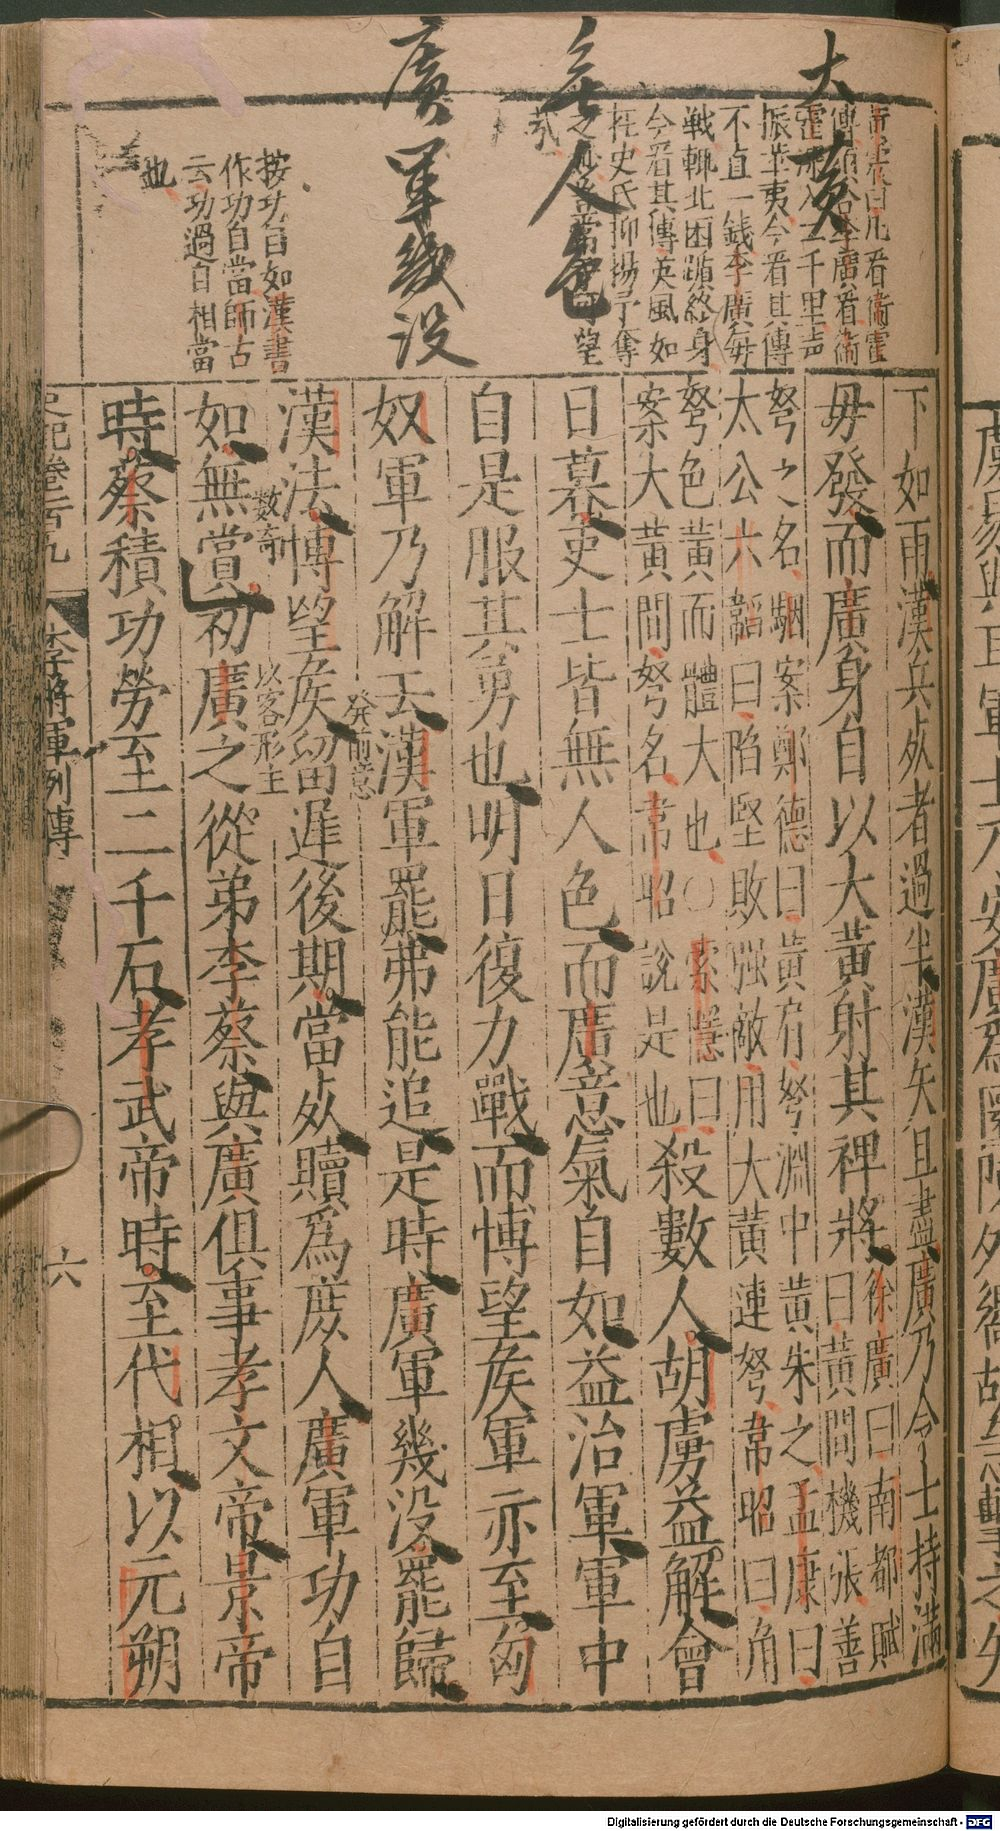 大黄
無人色
廣軍幾没
黄震曰凡看衛霍
傳須合李廣看衛
霍深入二千里声
振華夷今看其傳
不直一銭李廣每
戦輙北困躓終身
今看其傳英風如
在史氏抑揚予奪
之妙豈常手可望
哉
按功自如漢書
作功自當師古
云功過自相當
也
下如雨漢兵死者過半漢矢且盡廣乃令士持滿
毋發而廣身自以大黃射其裨將徐廣曰南都賦曰黃間機張善
弩之名駰案鄭德曰黃肩弩淵中黃朱之孟康曰
太公六韜曰陷堅敗强敵用大黃連弩韋昭曰角
弩色黃而體大也○索隱曰
案大黃間弩名韋昭說是也殺數人胡虜益解會
日暮吏士皆無人色而廣意氣自如益治軍軍中
自是服其勇也明日復力戰而博望矦軍亦至匈
奴軍乃解去漢軍罷弗能追是時廣軍幾沒罷歸
發前意
漢法博望矦留遲後期當死贖爲庶人廣軍功自
數奇
以客形主
如無賞初廣之從弟李蔡與廣俱事孝文帝景帝
時蔡積功勞至二千石孝武帝時至代相以元朔
史記卷百九
李將軍列傳
六
Digitalisierung gefördert durch die Deutsche Forschungsgemeinschaft - DFG